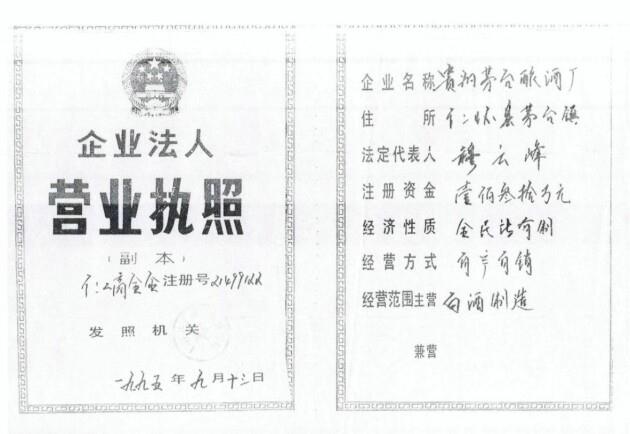 企业法人
营业执照
(副本)
注册号21499122
发照机关
一九九五年九月十三日
企业名称 贵州茅台酿酒厂
住所 仁怀县茅台镇
法定代表人 穆云峰
注册资金 壹佰叁拾万元
经济性质 全民所有制
经营方式 自产自销
经营范围主营 白酒制造
兼营